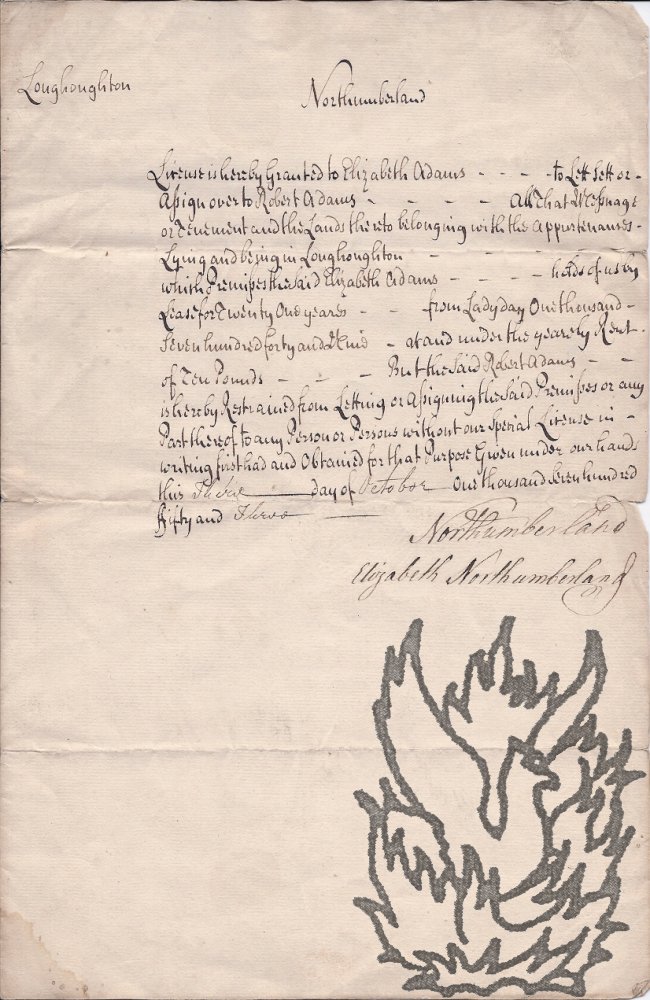 Loughoughton
Northumberland
License is hereby Granted to Elizabeth Adams - - - to Lett Sett or -
Assign over to Robert Adams - - - - - All that Messuage
or Tenement and the Lands thereto belonging with the Appurtenances -
Lying and being in Loughoughton - -
which Premisses the Said Elizabeth Adams - - - holds of us by
Lease for Twenty One yeares - - from Lady day One thousand -
Seven hundred forty and - at and under the yearely Rent -
of Ten Pounds - - - But the Said Robert Adams - -
is hereby Restrained from Letting or Assigning the Said Premisses or any
Part thereof to any Person or Persons without our Special License in -
writing first had and Obtained for that Purpose Given under our hands
this Three day of October One thousand Seven hundred
Fifty and Three
Northumberland
Elizabeth Northumberland